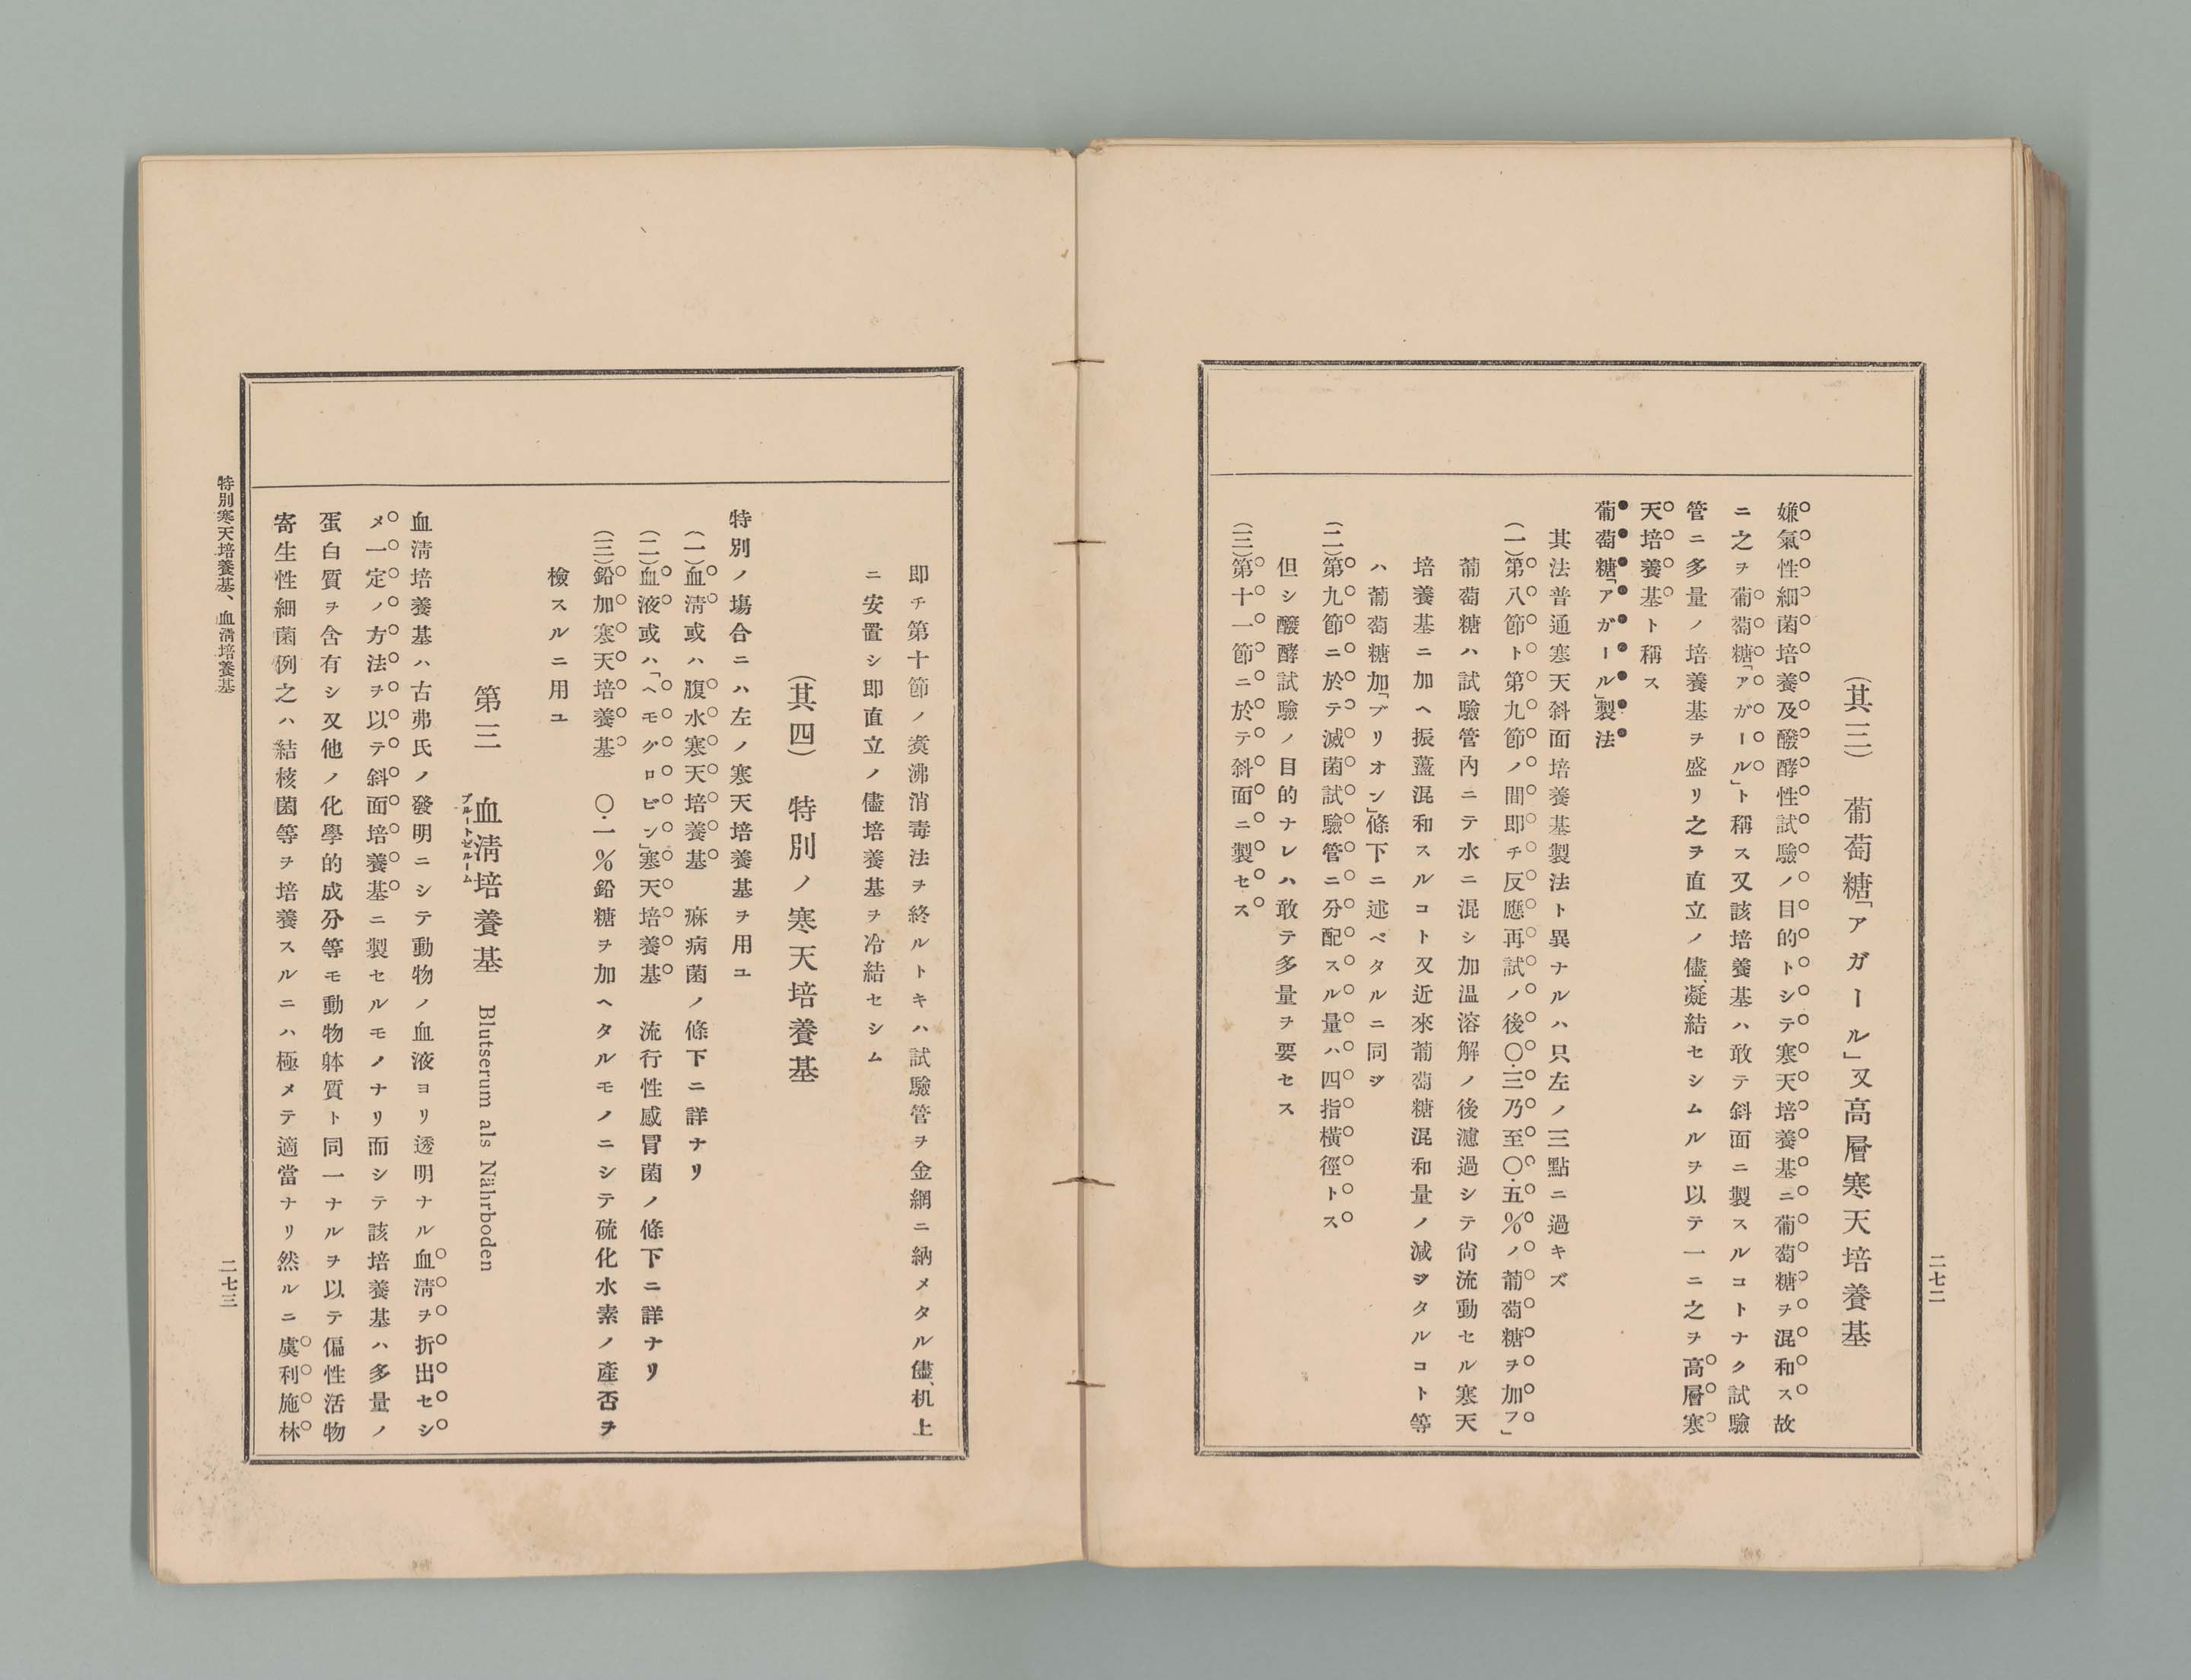 二七二
(其三) 葡萄糖「アガール」又高層寒天培養基
嫌氣性細菌培養及醱酵性試驗ノ目的トシテ寒天培養基ニ葡萄糖ヲ混和ス故
ニ之ヲ葡萄糖「アガール」ト稱ス又該培養基ハ敢テ斜面ニ製スルコトナク試驗
管ニ多量ノ培養基ヲ盛リ之ヲ直立ノ儘、凝結セシムルヲ以テ一ニ之ヲ高層寒
天培養基ト稱ス
葡萄糖「アガール」製法
其法普通寒天斜面培養基製法ト異ナルハ只左ノ三點ニ過キズ
(一)第八節ト第九節ノ間即チ反應再試ノ後〇・三乃至〇・五%ノ葡萄糖ヲ加フ」
葡萄糖ハ試驗管內ニテ水ニ混シ加温溶解ノ後濾過シテ尙流動セル寒天
培養基ニ加ヘ振盪混和スルコト又近來葡萄糖混和量ノ減ジタルコト等
ハ葡萄糖加「ブリオン」條下ニ述ベタルニ同ジ
(二)第九節ニ於テ滅菌試驗管ニ分配スル量ハ四指橫徑トス
但シ醱酵試驗ノ目的ナレハ敢テ多量ヲ要セス
(三)第十一節ニ於テ斜面ニ製セス
即チ第十節ノ煑沸消毒法ヲ終ルトキハ試驗管ヲ金網ニ納メタル儘、机上
ニ安置シ即直立ノ儘培養基ヲ冷結セシム
(其四) 特別ノ寒天培養基
特別ノ塲合ニハ左ノ寒天培養基ヲ用ユ
(一)血淸或ハ腹水寒天培養基 痳病菌ノ條下ニ詳ナリ
(二)血液或ハ「ヘモグロビン」寒天培養基 流行性感冒菌ノ條下ニ詳ナリ
(三)鉛加寒天培養基 〇・一%鉛糖ヲ加ヘタルモノニシテ硫化水素ノ產否ヲ
檢スルニ用ユ
第三 血淸培養基 Blutserum als Nährboden
ブルートゼルーム
血淸培養基ハ古弗氏ノ發明ニシテ動物ノ血液ヨリ透明ナル血淸ヲ折出セシ
メ一定ノ方法ヲ以テ斜面培養基ニ製セルモノナリ而シテ該培養基ハ多量ノ
蛋白質ヲ含有シ又他ノ化學的成分等モ動物躰質ト同一ナルヲ以テ偏性活物
寄生性細菌例之ハ結核菌等ヲ培養スルニハ極メテ適當ナリ然ルニ虞利施林
特別寒天培養基、血淸培養基
二七三